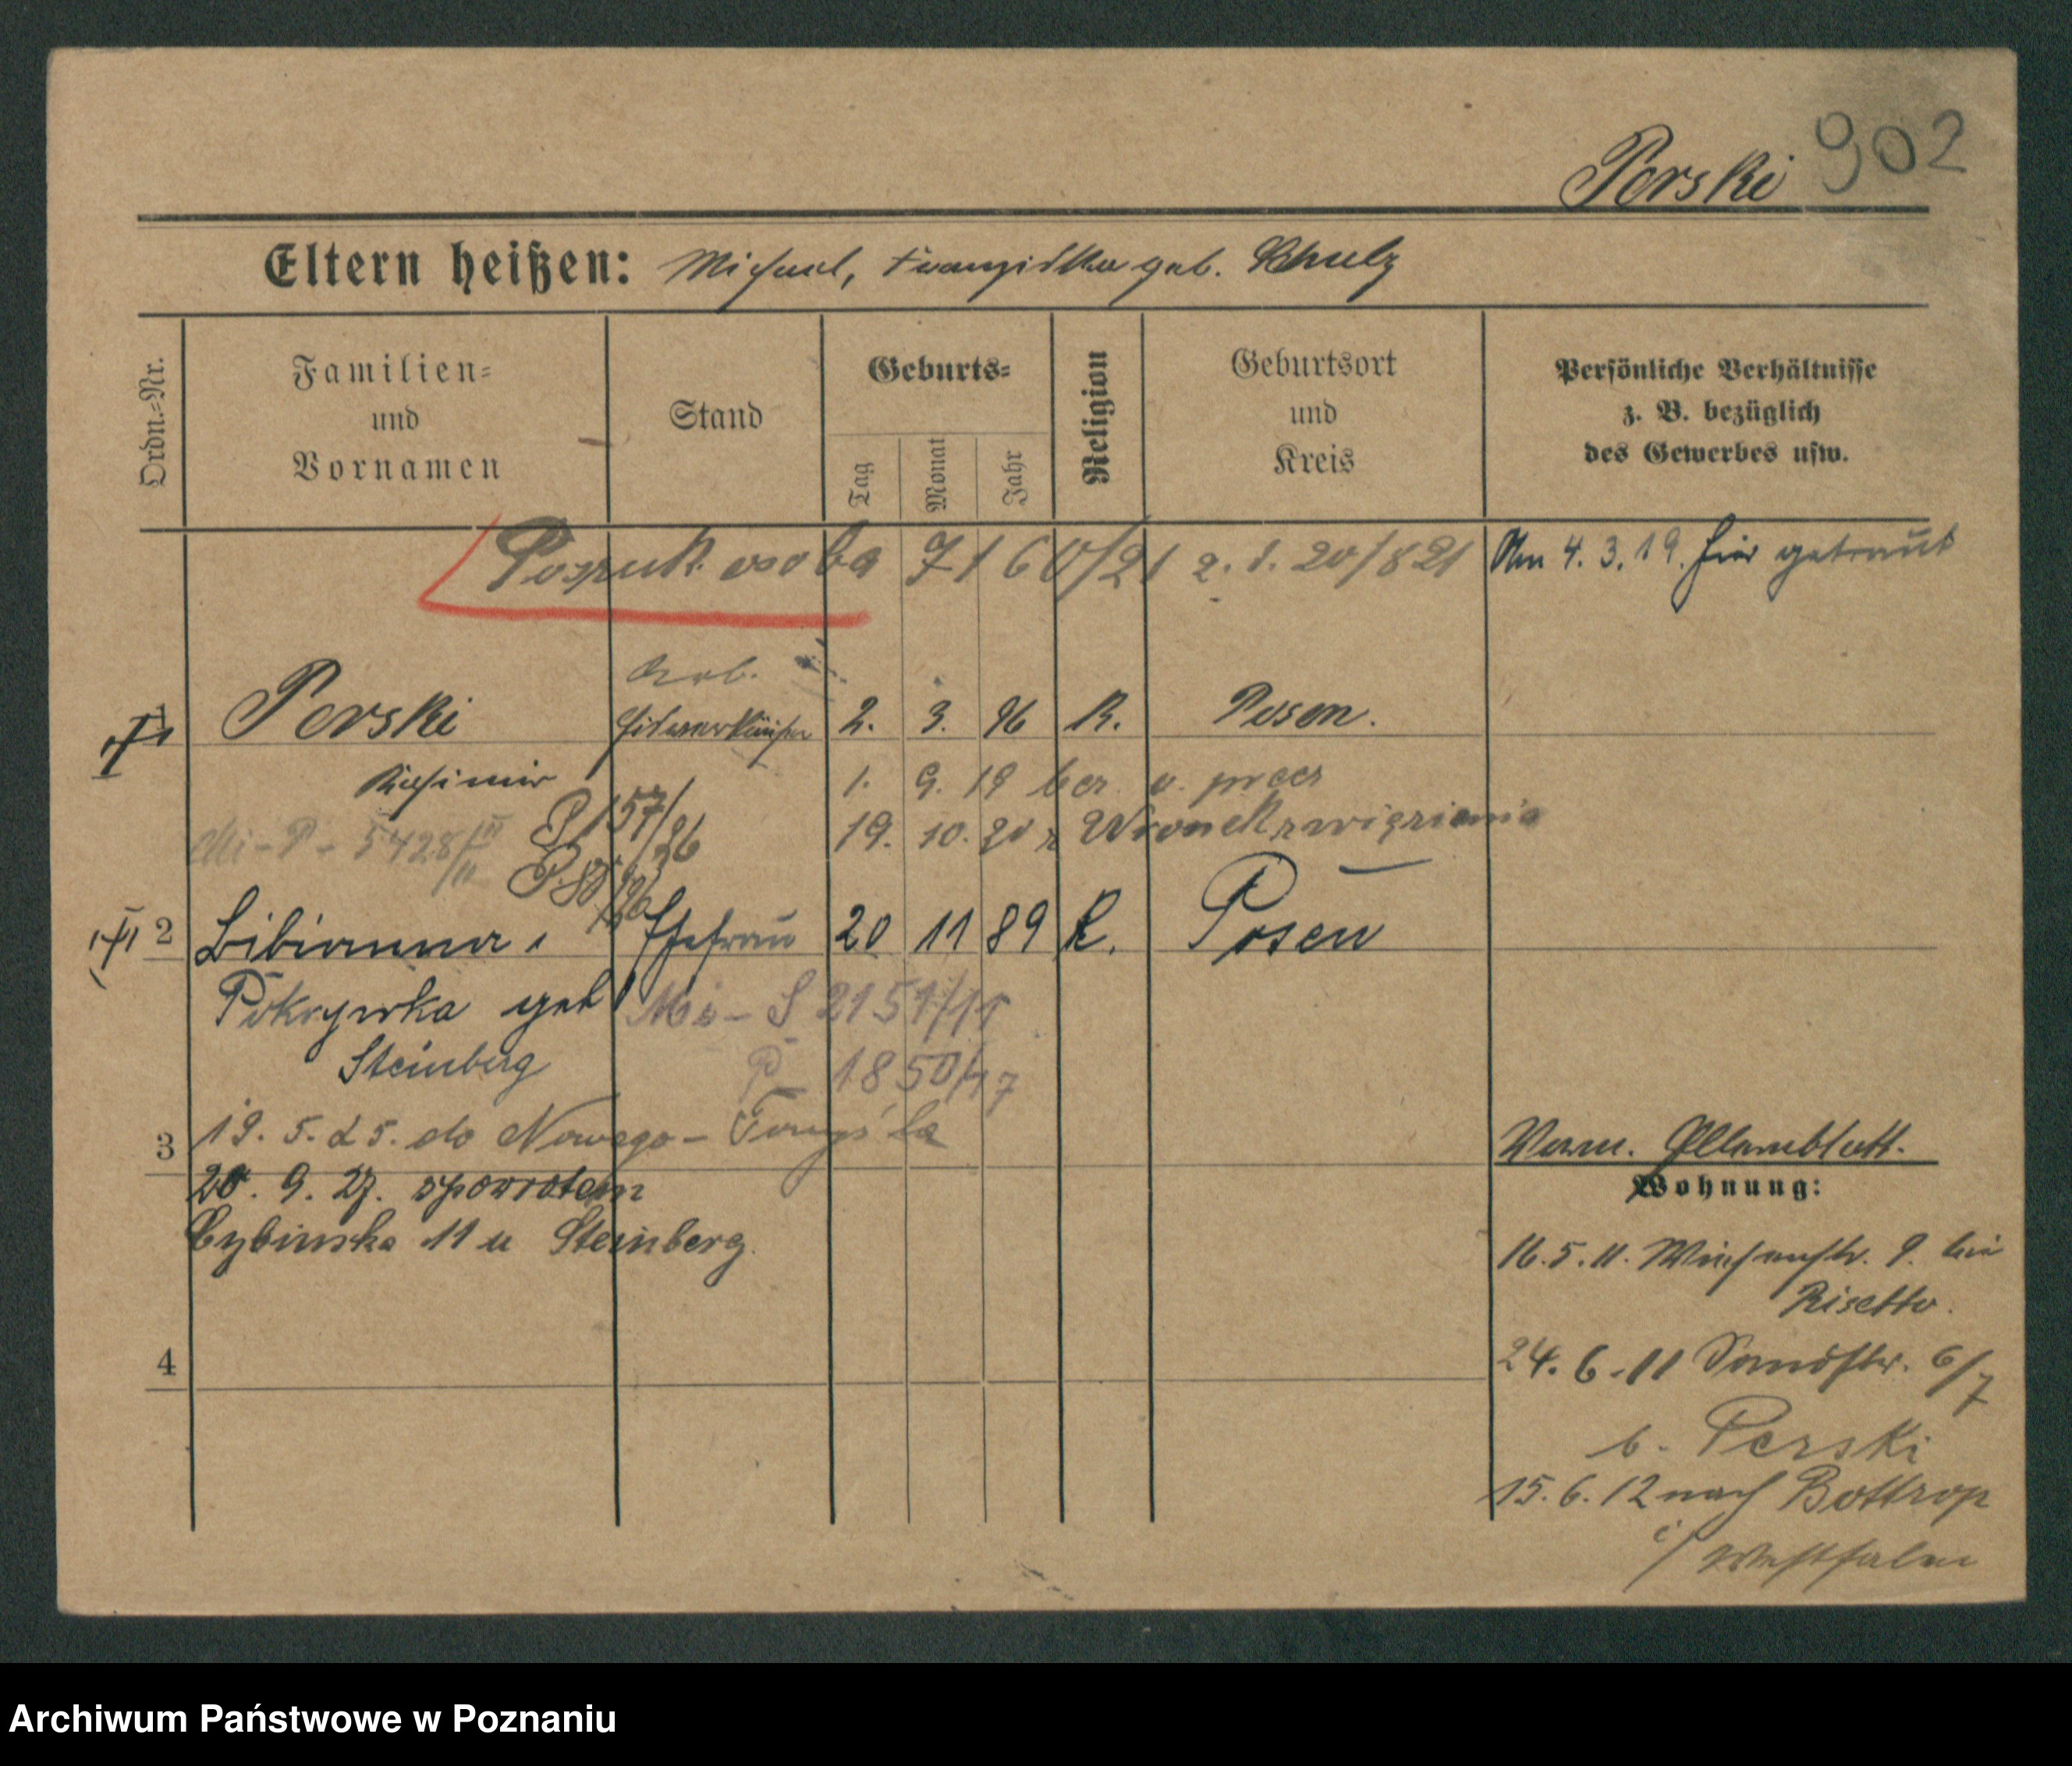 Perski 902
Eltern heißen: Michael, Franziska geb. Schulz
Ordn.-Nr.
Familien-
und
Vornamen
Stand
Geburts-
Tag
Monat
Jahr
Religion
Geburtsort
und
Kreis
Persönliche Verhältnisse
z. B. bezüglich
des Gewerbes usw.
Poszuk. osoba 7160/21 z. d. 20/8 21
Am 4. 3. 19. hier getraut
Arb.
1 Perski 2. 3. 96 K. Posen.
Kasimir 1. 9. 19 bez. o. pracy
19. 10. 20 z Wronek z więzienia
Mi-P- 5428/II
P 157/26
2 Bibianna, Ehefrau 20 11 89 K. Posen
Pokrywka geb
Steinberg
Mi- S 2151/11
P- 1850/17
3 19. 5. 25. do Nowego-Tomyśla
20. 9. 27. spowrotem
Cybinska 11 u Steinberg.
4
Verw. Elternblatt.
Wohnung:
16. 5. 11. 9. bei
24. 6. 11 Sandstr. 6/7
b. Perski
15. 6. 12 nach Bottrop
i/ Westfalen
Archiwum Państwowe w Poznaniu